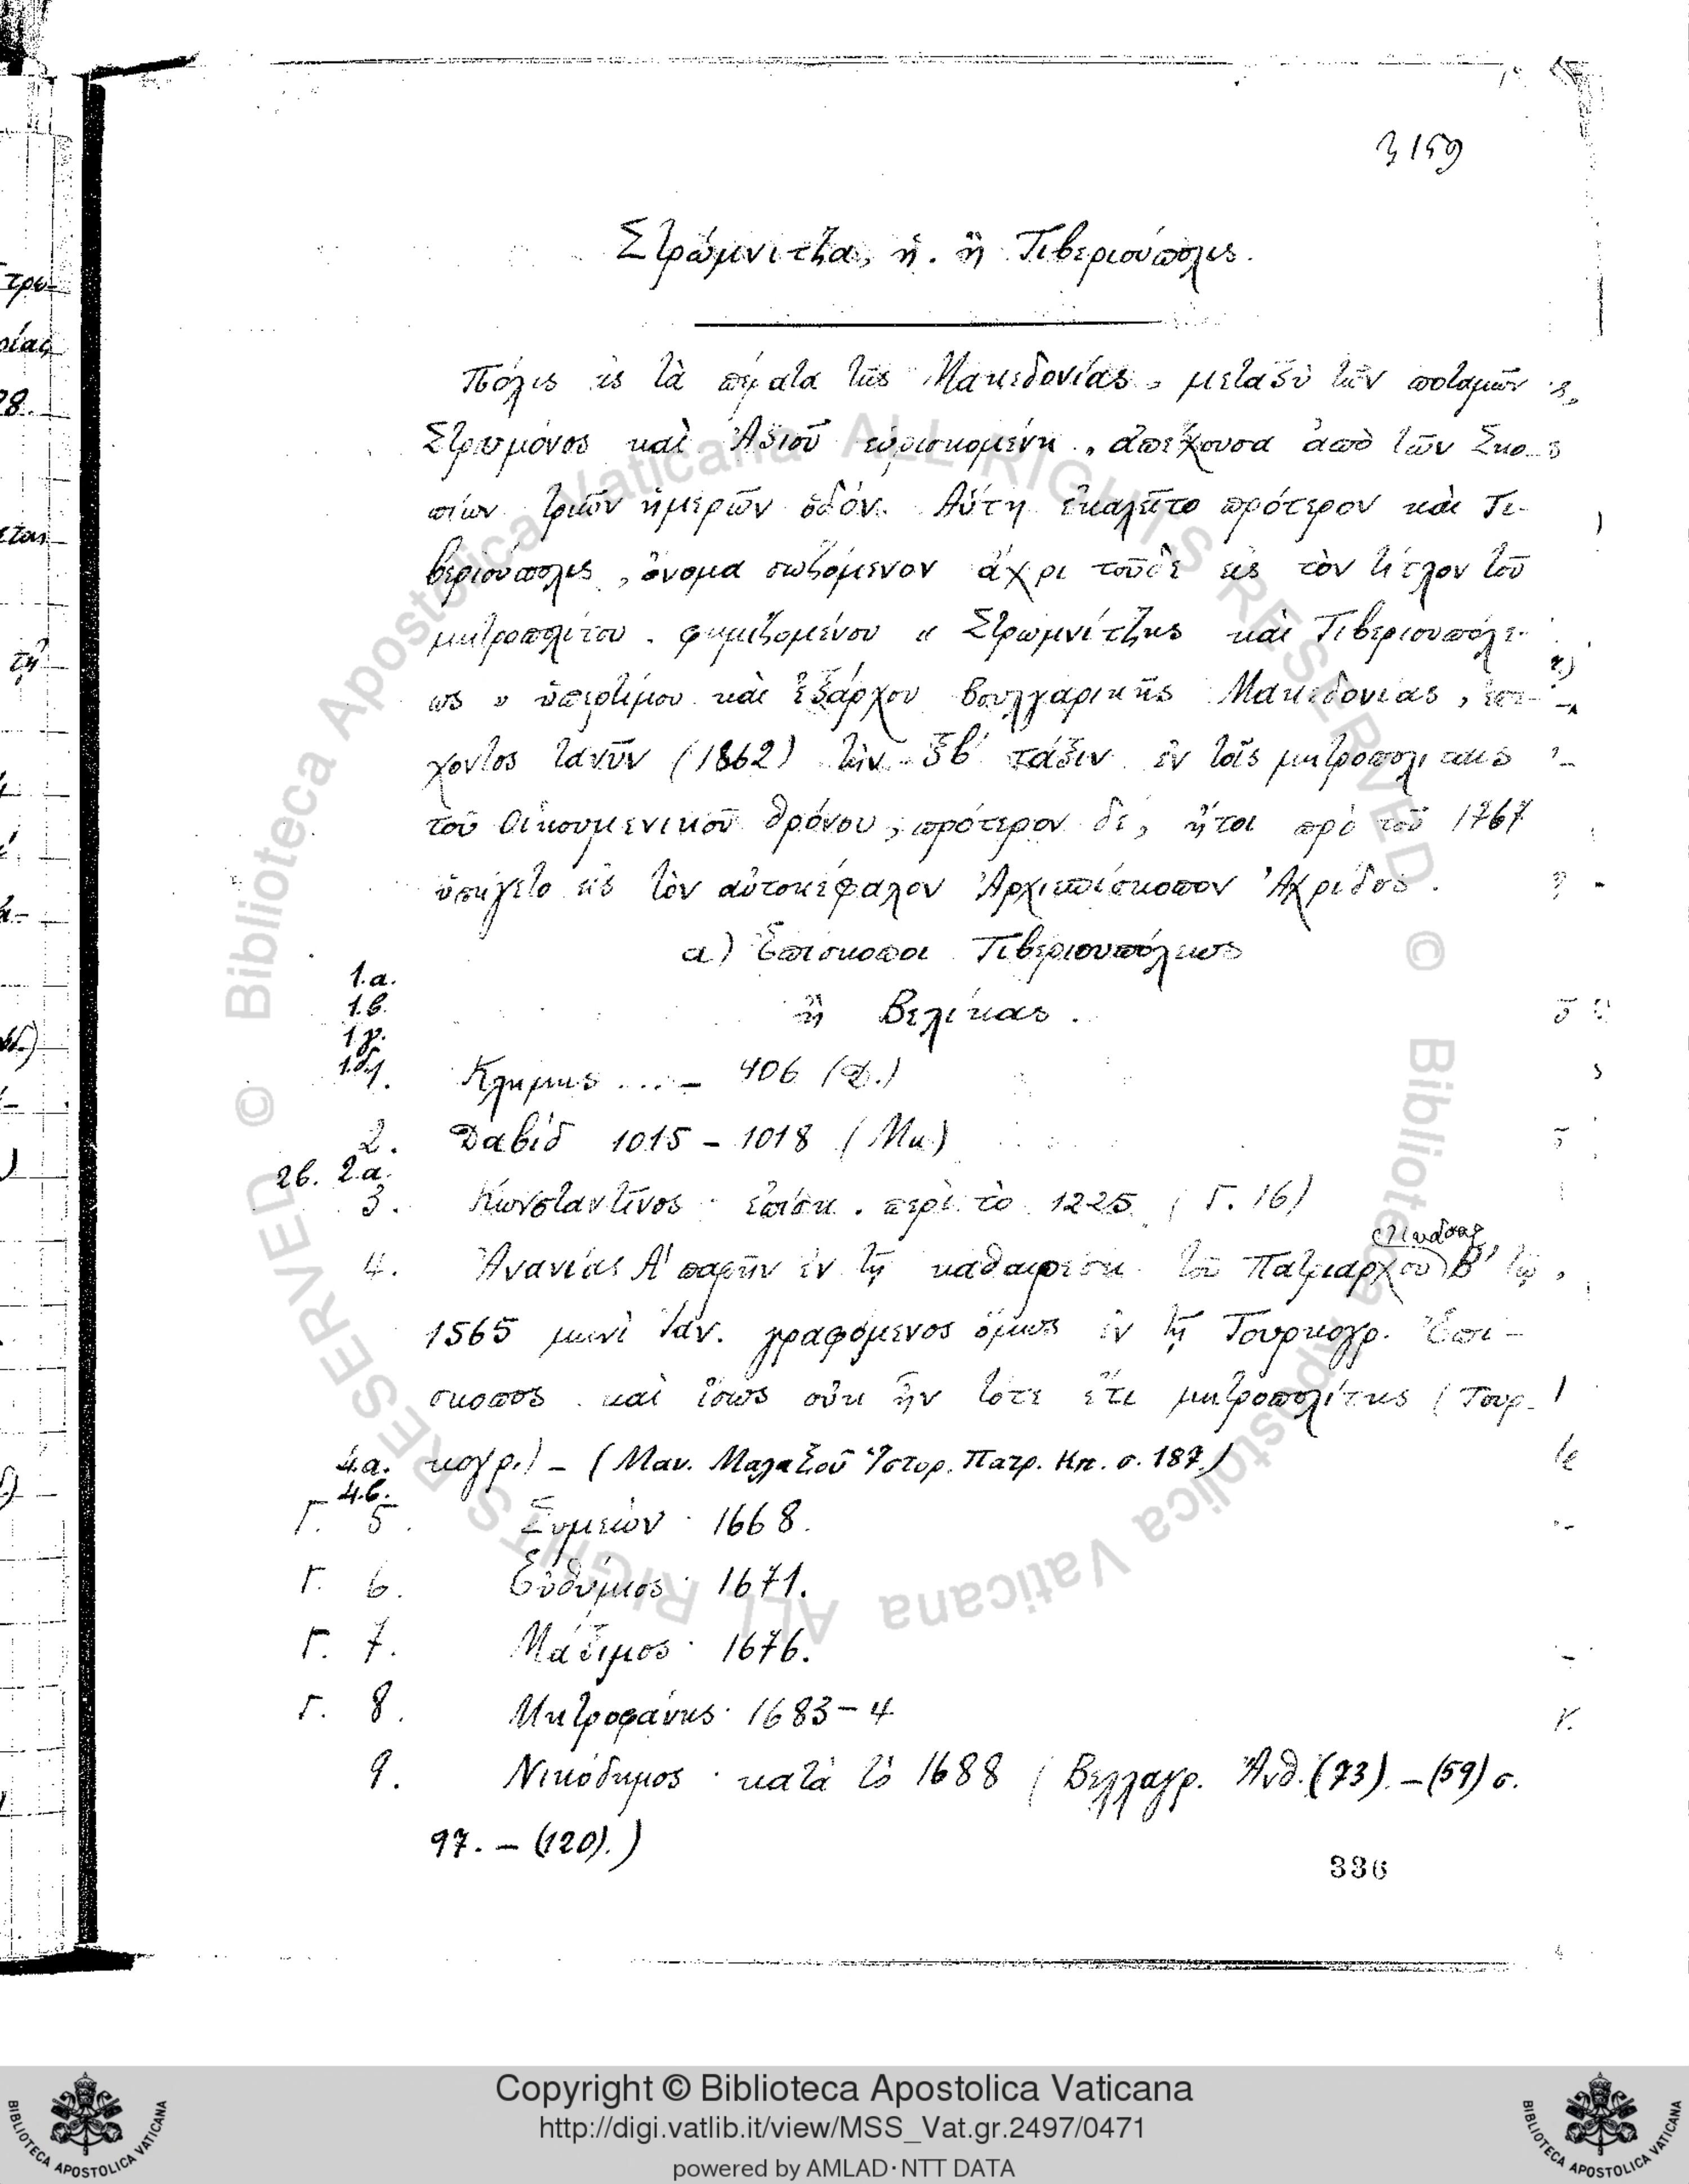 3159
Στρώμνιτζα, ἡ. ἢ Τιβεριούπολις.
Πόλις εἰς τὰ πέρατα τῆς Μακεδονίας, μεταξὺ τῶν ποταμῶν
Στρυμόνος καὶ Ἀξιοῦ εὑρισκομένη, ἀπέχουσα ἀπὸ τῶν Σκο-
πίων τριῶν ἡμερῶν ὁδόν. Αὕτη ἐκαλεῖτο πρότερον καὶ Τι-
βεριούπολις, ὄνομα σωζόμενον ἄχρι τοῦδε εἰς τὸν τίτλον τοῦ
μητροπολίτου. φημιζομένου « Στρωμνίτζης καὶ Τιβεριουπόλε-
ως » ὑπερτίμου καὶ ἐξάρχου βουλγαρικῆς Μακεδονίας, ἐπέ-
χοντος τανῦν (1862) τὴν ξβ΄ τάξιν ἐν τοῖς μητροπολίταις
τοῦ Οἰκουμενικοῦ θρόνου, πρότερον δέ, ἤτοι πρὸ τοῦ 1767
ὑπήγετο εἰς τὸν αὐτοκέφαλον Ἀρχιεπίσκοπον Ἀχρίδος.
α) Ἐπίσκοποι Τιβεριουπόλεως
1.α.
1.β. ἢ Βελίκας.
1.γ.
1.δ.
1. Κλήμης ... – 906 (Δ.)
2. Δαβίδ 1015 – 1018 (Μκ)
2β. 2α.
3. Κωνσταντῖνος · ἐπίσκ. περὶ τὸ 1225 (Γ. 16)
4. Ἀνανίας Α΄ παρῆν ἐν τῇ καθαιρέσει τοῦ Πατριάρχου Ἰωάσαφ Β΄ τῷ
1565 μηνὶ Ἰαν. γραφόμενος ὅμως ἐν τῇ Τουρκογρ. Ἐπί-
σκοπος καὶ ἴσως οὐκ ἦν τότε ἔτι μητροπολίτης (Τουρ-
4.α. κογρ.) – (Μαν. Μαλαξοῦ Ἱστορ. Πατρ. Κπ. σ. 187.)
4.β.
Γ. 5. Συμεών · 1668.
Γ. 6. Εὐθύμιος · 1671.
Γ. 7. Μάξιμος · 1676.
Γ. 8. Μητροφάνης · 1683–4
9. Νικόδημος · κατὰ τὸ 1688 (Βελλαγρ. Ἀνθ. (73). – (59) σ.
97. – (120).)
336
Copyright © Biblioteca Apostolica Vaticana
http://digi.vatlib.it/view/MSS_Vat.gr.2497/0471
powered by AMLAD·NTT DATA
BIBLIOTECA APOSTOLICA VATICANA
BIBLIOTECA APOSTOLICA VATICANA
© Biblioteca Apostolica Vaticana ALL RIGHTS RESERVED
© Biblioteca Apostolica Vaticana ALL RIGHTS RESERVED